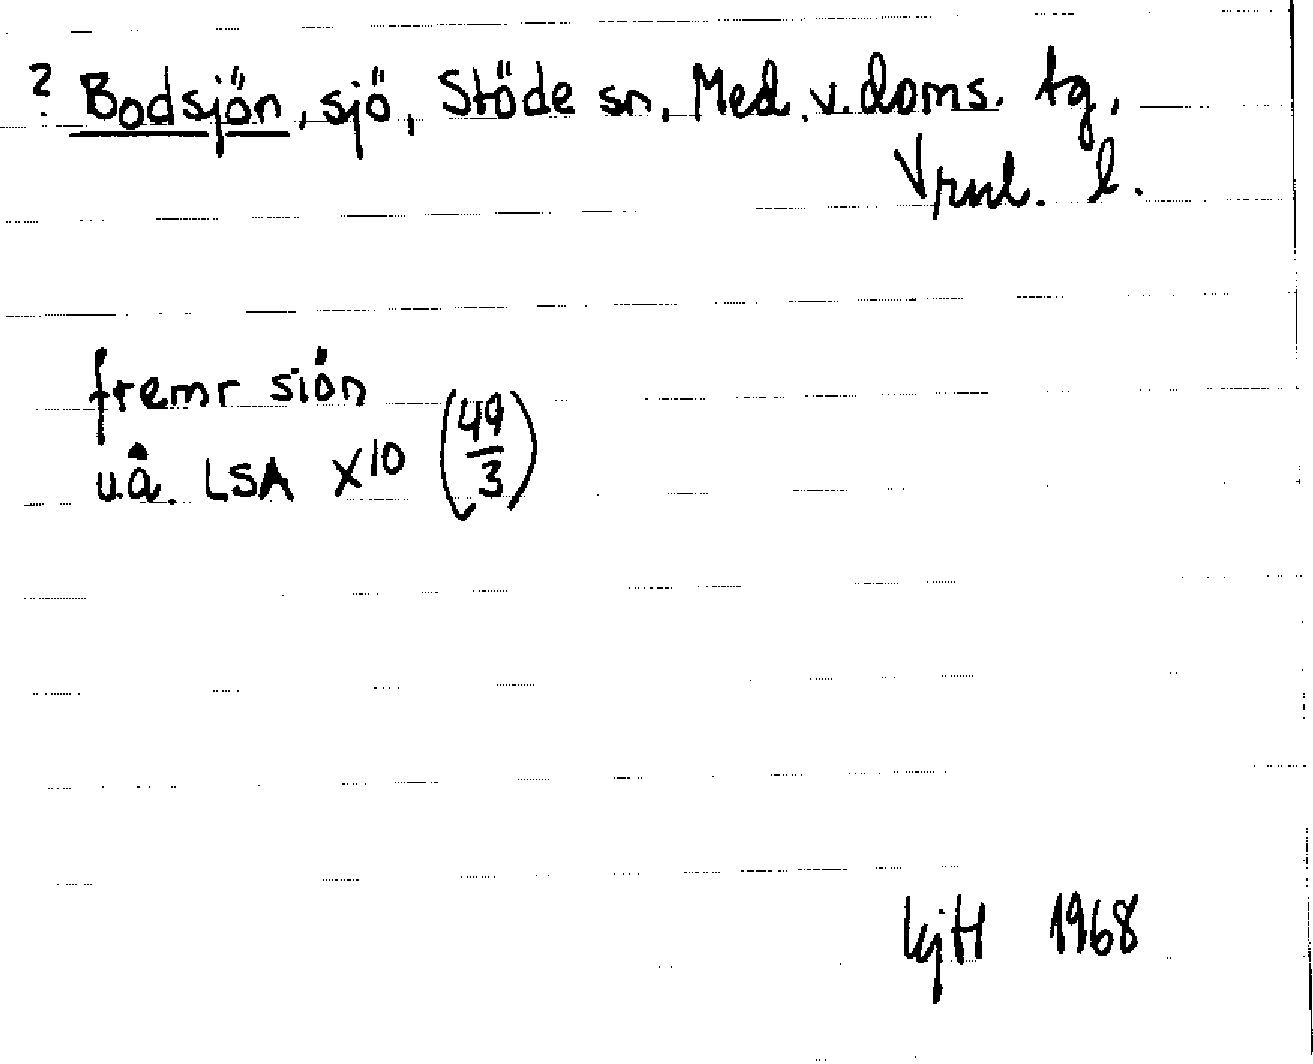 ? Bodsjön, sjö, Stöde sn, Med. v. doms. tg,
Vrnl. l.
fremr siön
u.å. LSA X10 (49/3)
KjH 1968